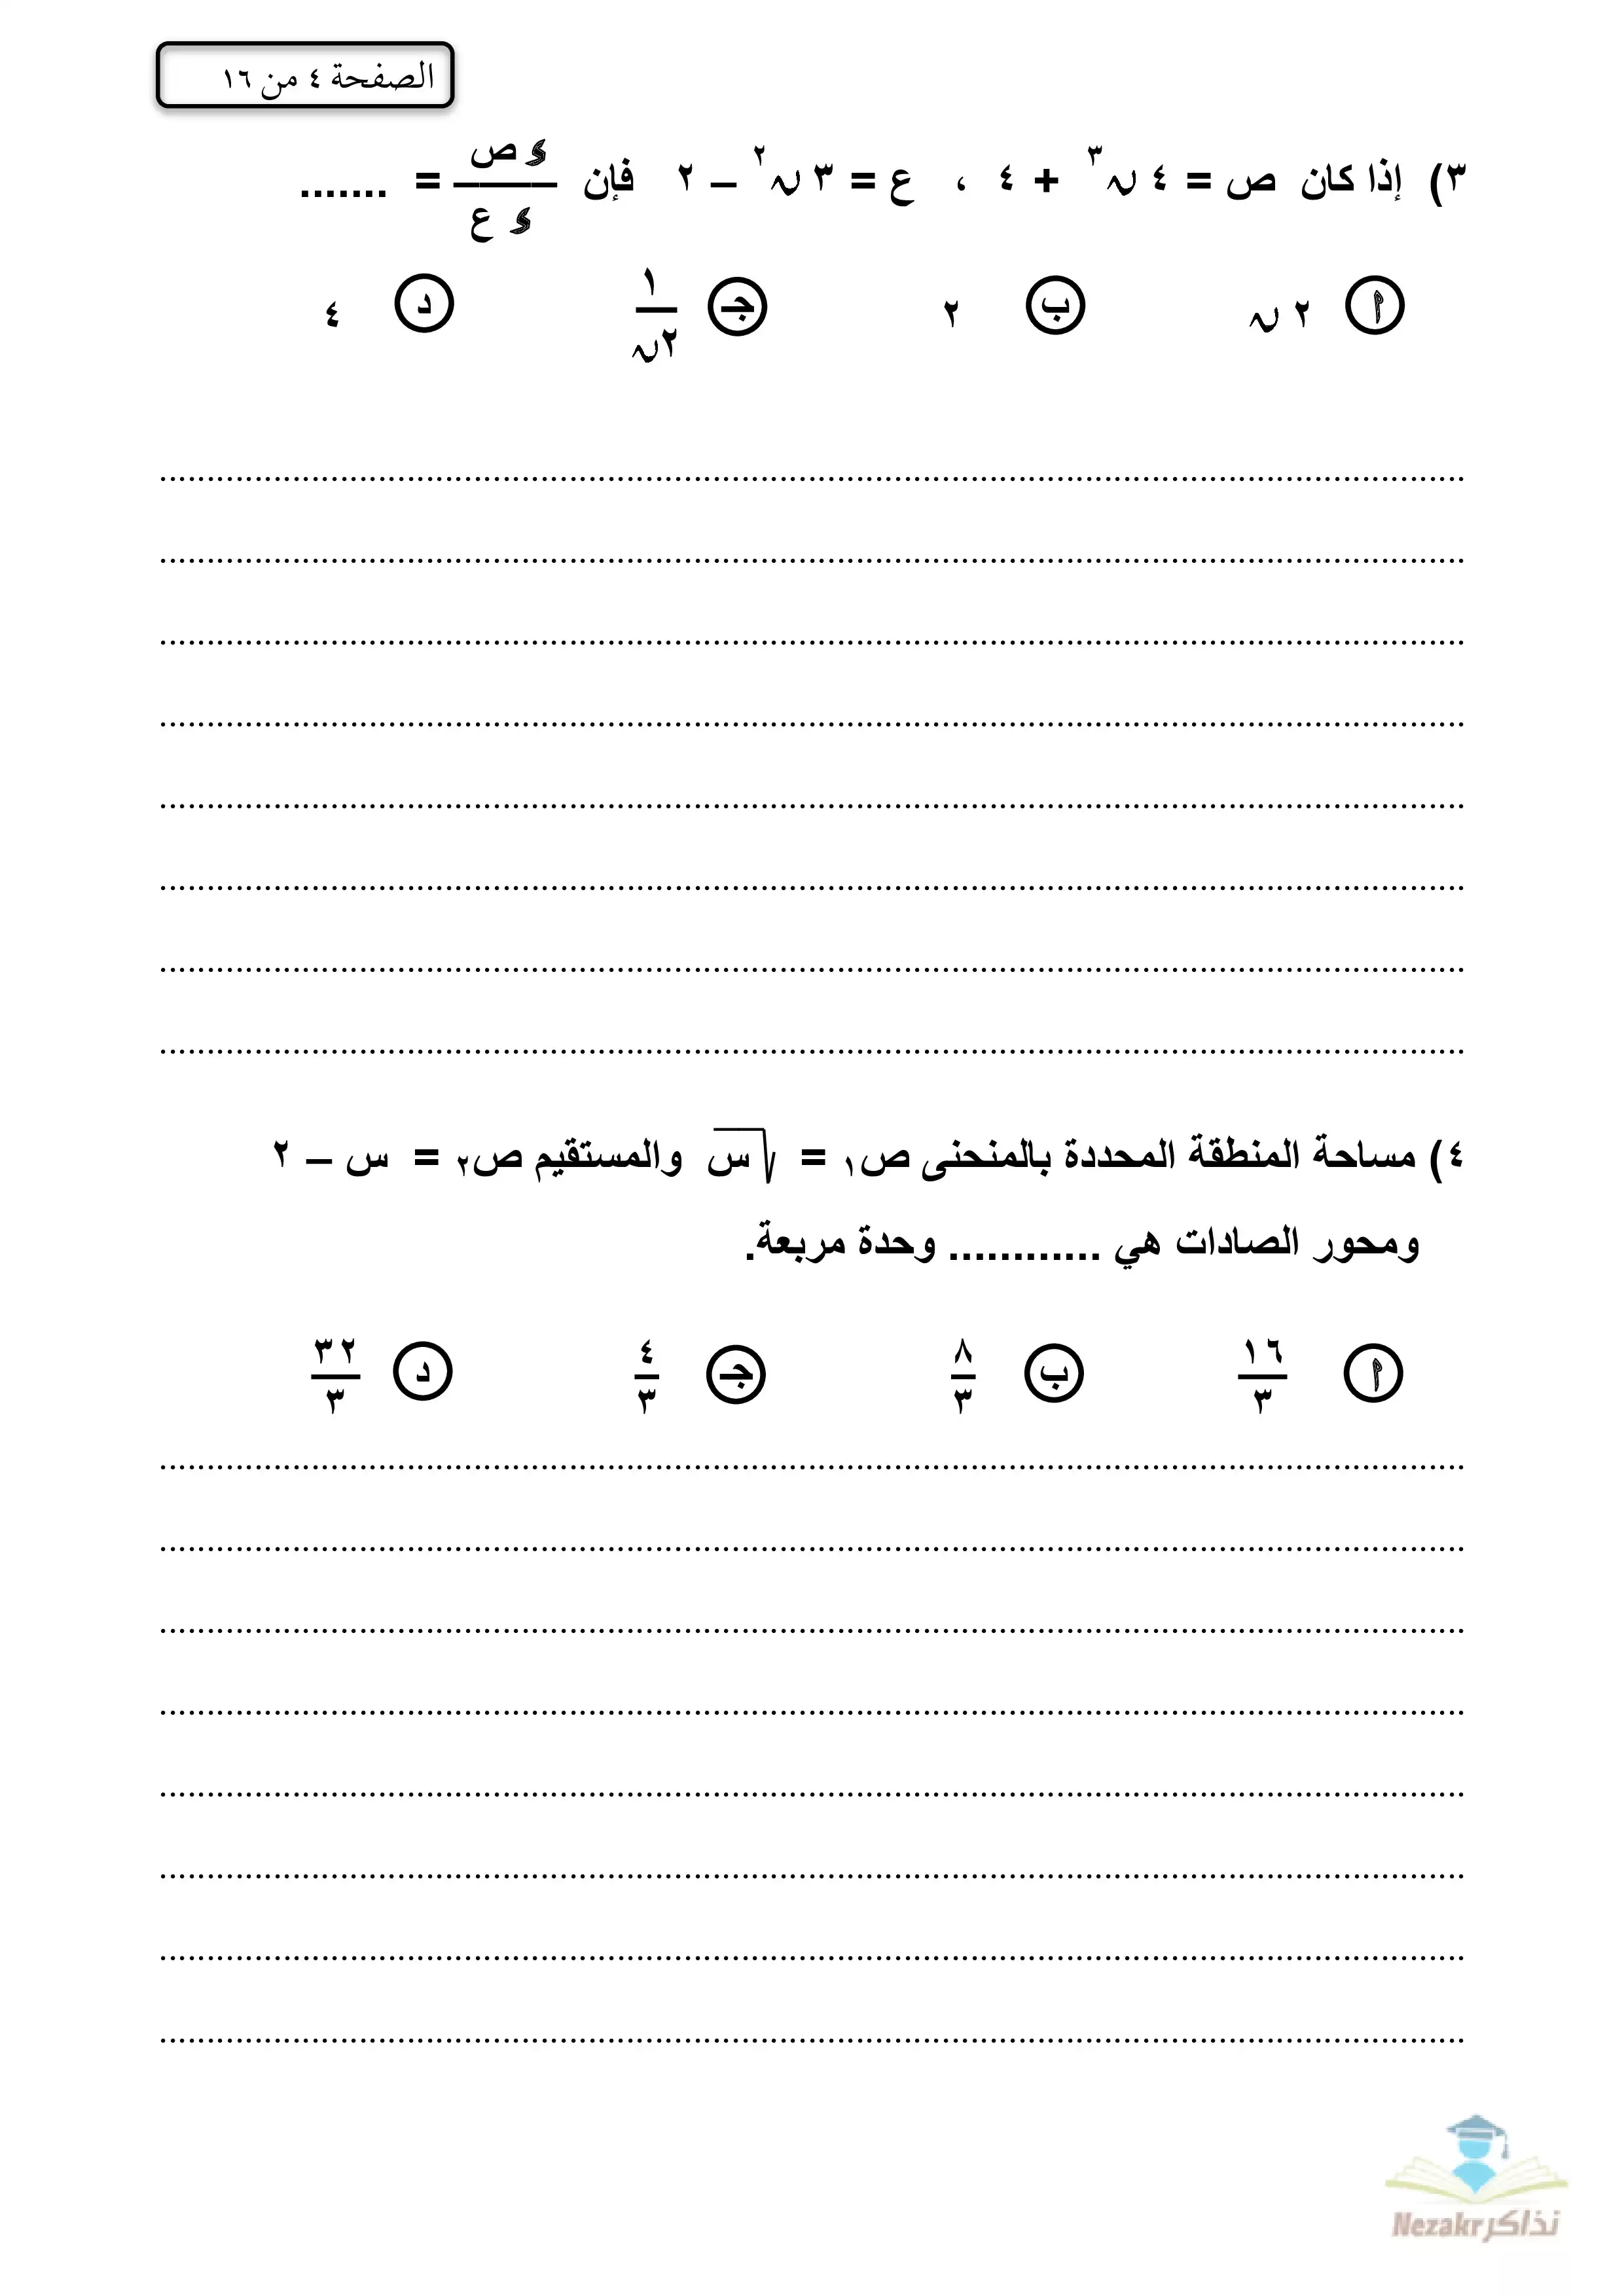 الصفحة ٤ من ١٦
٣) إذا كان ص = ٤ ن^٣ + ٤ ، ع = ٣ ن^٢ – ٢ فإن ء ص / ء ع = .......
أ ٢ ن ب ٢ جـ ١ / ٢ن د ٤
................................................................
................................................................
................................................................
................................................................
................................................................
................................................................
................................................................
................................................................
٤) مساحة المنطقة المحددة بالمنحنى ص١ = √س والمستقيم ص٢ = س – ٢
ومحور الصادات هي ............ وحدة مربعة.
أ ١٦ / ٣ ب ٨ / ٣ جـ ٤ / ٣ د ٣٢ / ٣
................................................................
................................................................
................................................................
................................................................
................................................................
................................................................
................................................................
................................................................
نذاكر Nezakr